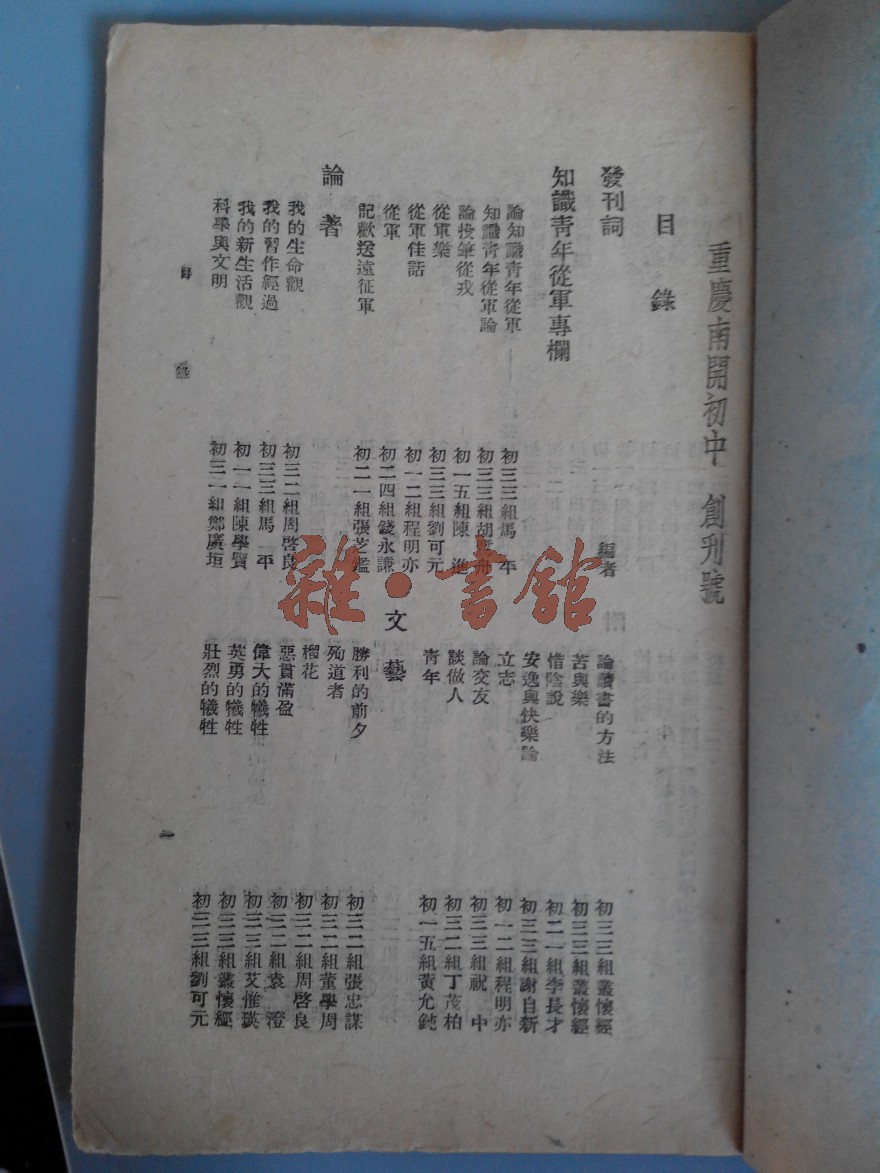 重慶南開初中 創刊號
目錄
發刊詞 編者
知識青年從軍專欄
論知識青年從軍 初三三組馬一平
知識青年從軍論 初三三組胡 舟
論投筆從戎 初一五組陳 進
從軍樂 初三三組劉可元
從軍佳話 初一二組程明亦
從軍 初二四組錢永謙
記歡送遠征軍 初二一組張芝
論著
我的生命觀 初三二組周啓良
我的習作經過 初三三組馬一平
我的新生活觀 初一一組陳學賢
科學與文明 初三一組鄭廣垣
論讀書的方法 初三三組叢懷經
苦與樂 初三三組叢懷經
惜陰説 初二一組李長才
安逸與快樂論 初三三組謝自新
立志 初一二組程明亦
論交友 初三三組祝 中
談做人 初三二組丁茂柏
青年 初一五組黃允
文藝
勝利的前夕 初三二組張忠謀
殉道者 初三二組董學周
榴花 初三二組周啓良
惡貫滿盈 初二二組袁 澄
偉大的犧牲 初三三組艾惟瑛
英勇的犧牲 初三三組叢懷經
壯烈的犧牲 初三三組劉可元
目錄
一
雜·書館